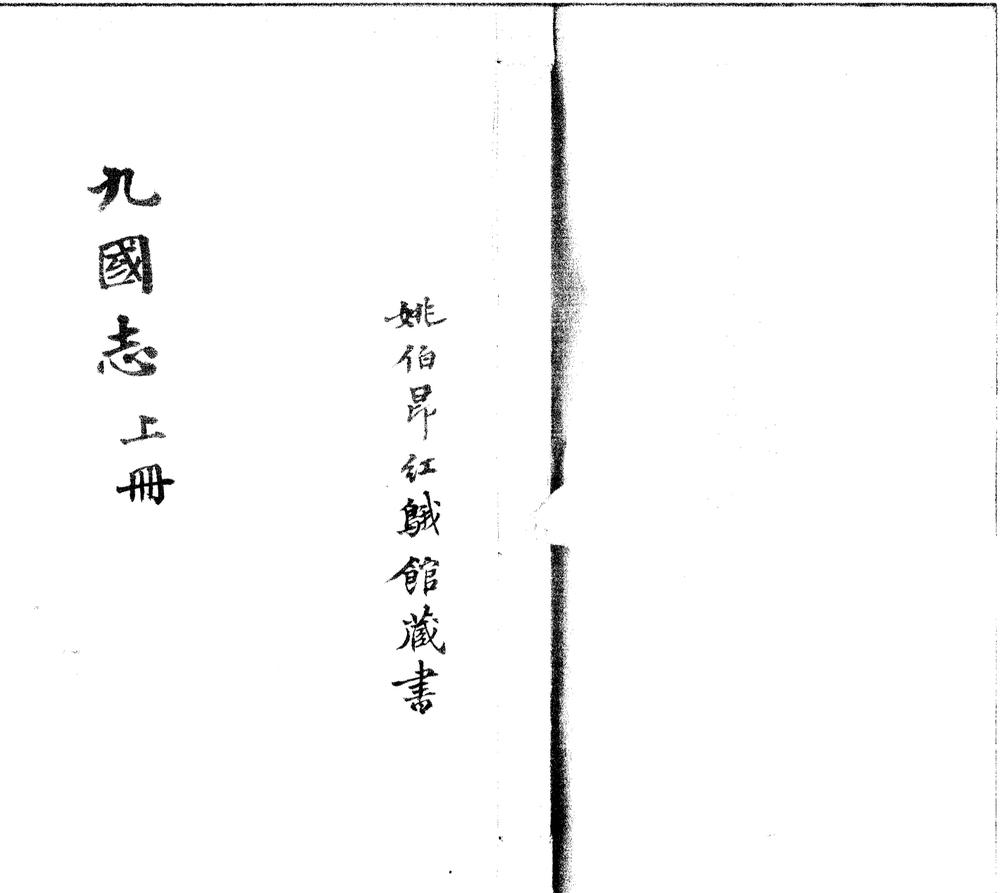 姚伯昂紅鵞館藏書
九國志 上冊